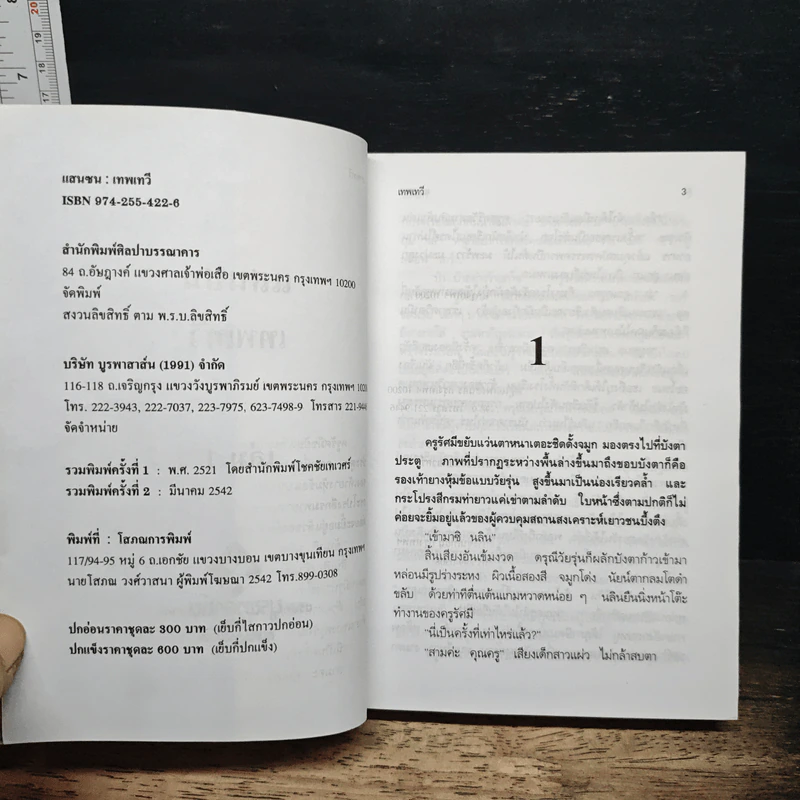 แสนซน : เทพเทวี
ISBN 974-255-422-6
สำนักพิมพ์ศิลปาบรรณาคาร
84 ถ.อัษฎางค์ แขวงศาลเจ้าพ่อเสือ เขตพระนคร กรุงเทพฯ 10200
จัดพิมพ์
สงวนลิขสิทธิ์ ตาม พ.ร.บ.ลิขสิทธิ์
บริษัท บูรพาสาส์น (1991) จำกัด
116-118 ถ.เจริญกรุง แขวงวังบูรพาภิรมย์ เขตพระนคร กรุงเทพฯ
โทร. 222-3943, 222-7037, 223-7975, 623-7498-9 โทรสาร
จัดจำหน่าย
รวมพิมพ์ครั้งที่ 1 : พ.ศ. 2521 โดยสำนักพิมพ์โชคชัยเทเวศร์
รวมพิมพ์ครั้งที่ 2 : มีนาคม 2542
พิมพ์ที่ : โสภณการพิมพ์
117/94-95 หมู่ 6 ถ.เอกชัย แขวงบางบอน เขตบางขุนเทียน กรุงเทพฯ
นายโสภณ วงศ์วาสนา ผู้พิมพ์โฆษณา 2542 โทร.899-0308
ปกอ่อนราคาชุดละ 300 บาท (เย็บกี่ไสกาวปกอ่อน)
ปกแข็งราคาชุดละ 600 บาท (เย็บกี่ปกแข็ง)
เทพเทวี 3
1
ครูรัศมีขยับแว่นตาหนาเตอะชิดดั้งจมูก มองตรงไปที่บังตา
ประตู ภาพที่ปรากฏระหว่างพื้นล่างขึ้นมาถึงขอบบังตาก็คือ
รองเท้ายางหุ้มข้อแบบวัยรุ่น สูงขึ้นมาเป็นน่องเรียวคล้ำ และ
กระโปรงสีกรมท่ายาวแค่เข่าตามลำดับ ใบหน้าซึ่งตามปกติก็ไม่
ค่อยจะยิ้มอยู่แล้วของผู้ควบคุมสถานสงเคราะห์เยาวชนบึ้งตึง
"เข้ามาซิ นลิน"
สิ้นเสียงอันเข้มงวด ดรุณีวัยรุ่นก็ผลักบังตาก้าวเข้ามา
หล่อนมีรูปร่างระหง ผิวเนื้อสองสี จมูกโด่ง นัยน์ตากลมโตดำ
ขลับ ด้วยท่าทีตื่นเต้นแกมหวาดหน่อย ๆ นลินยืนนิ่งหน้าโต๊ะ
ทำงานของครูรัศมี
"นี่เป็นครั้งที่เท่าไหร่แล้ว?"
"สามค่ะ คุณครู" เสียงเด็กสาวแผ่ว ไม่กล้าสบตา